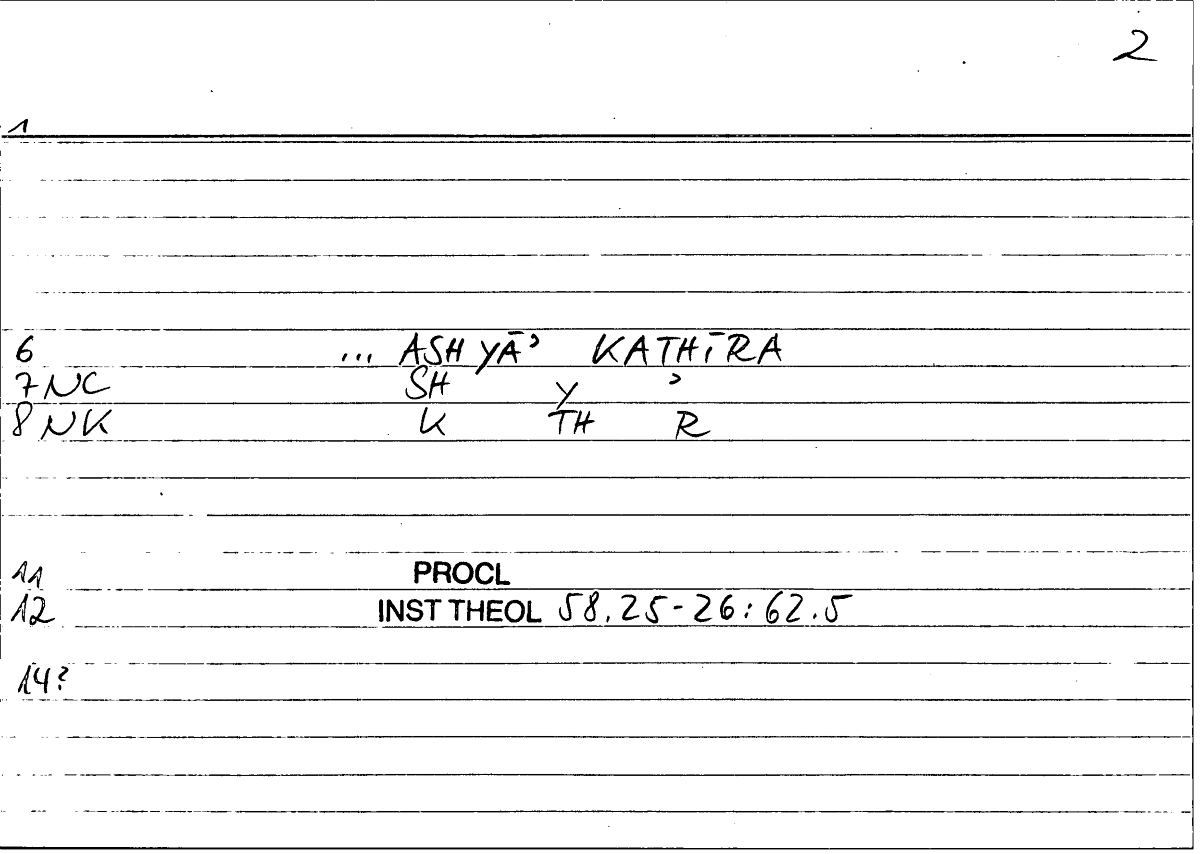 2
1
6 ... ASHYĀʾ KATHĪRA
7 NC SH Y ʾ
8 NK K TH R
11 PROCL
12 INST THEOL 58.25-26:62.5
14?